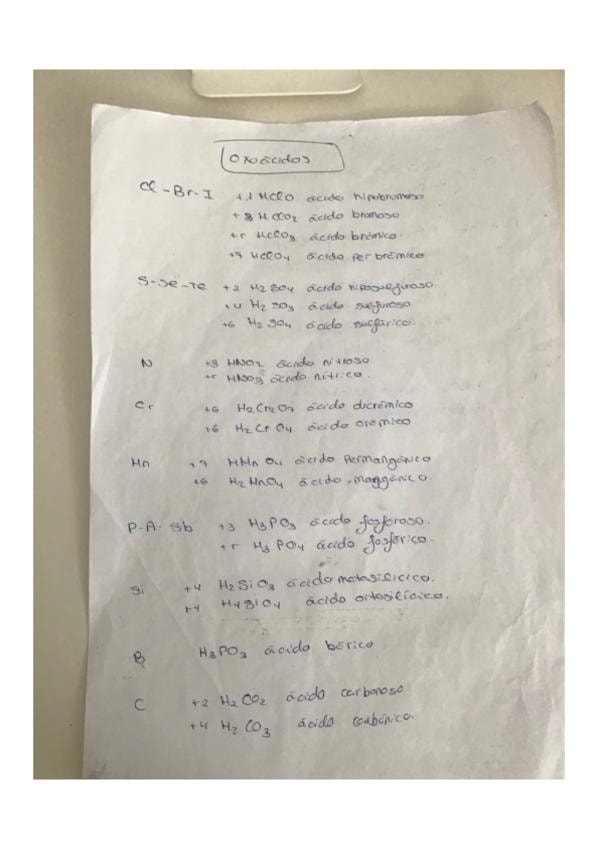 Oxoácidos
Cl - Br - I +1 HClO ácido hipobromoso
+3 HClO2 ácido bromoso
+5 HClO3 ácido brómico.
+7 HClO4 ácido perbrómico
S - Se - Te +2 H2SO4 ácido hiposulfuroso.
+4 H2SO3 ácido sulfuroso
+6 H2SO4 ácido sulfúrico.
N +3 HNO2 ácido nitroso
+5 HNO3 ácido nítrico.
Cr +6 H2Cr2O7 ácido dicrómico
+6 H2CrO4 ácido crómico
Mn +7 HMnO4 ácido permangánico
+6 H2MnO4 ácido mangánico.
P - A - Sb +3 H3PO3 ácido fosforoso.
+5 H3PO4 ácido fosfórico.
Si +4 H2SiO3 ácido metasilícico.
+4 H4SiO4 ácido ortosilícico.
B H3PO3 ácido bórico
C +2 H2CO2 ácido carbonoso
+4 H2CO3 ácido carbónico.